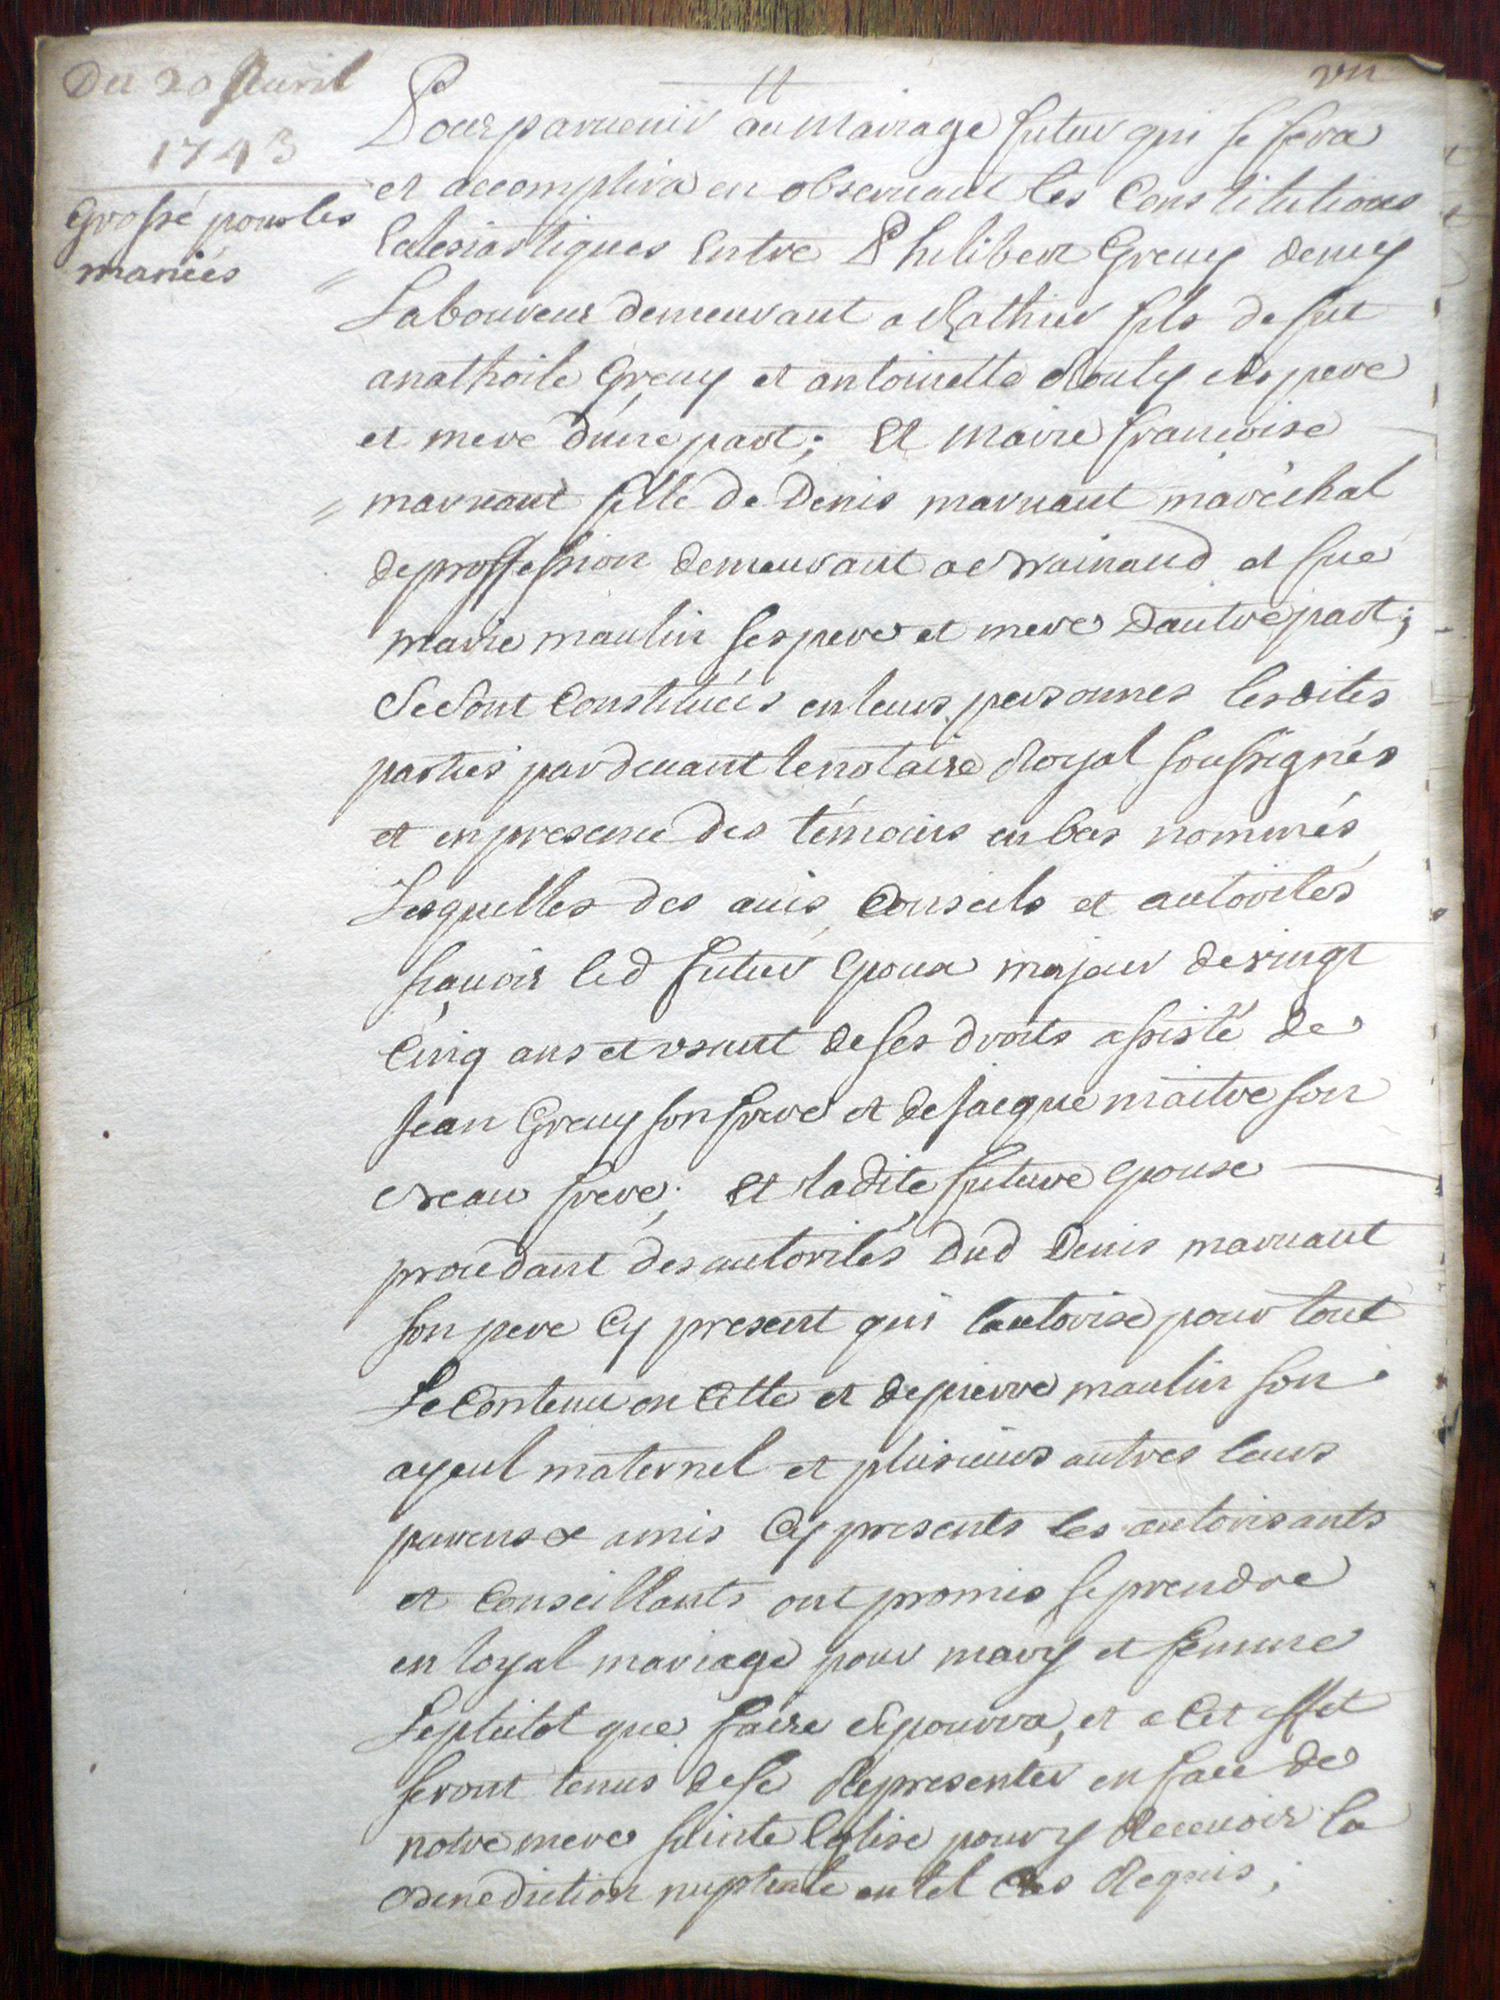 Du 20 Avril
1743
Grossé pour les
mariés
Pour parvenir au Mariage futur qui se fera
et accomplira en observant les Constitutions
Eclesiastiques Entre Philibert Greuy demy
Laboureur demeurant a Rathier fils de fut
anathoile Greuy et antoinette Rouly ses pere
et mere d'une part; Et Marie francoise
marvant fille de Denis marvant maréchal
de proffession demeurant a Brainaud et fue
marie maulin ses pere et mere D'autre part;
Se sont Constitués en leurs personnes lesdites
parties pardevant le notaire Royal soussignés
et en presence des témoins en bas nommés
Lesquelles des avis Conseils et autorités
sçavoir led futur Epoux majeur de vingt
Cinq ans et usant de ses droits assisté de
Jean Greuy son frere et de Jacque maitre son
Beau frere; Et ladite future Epouse
procedant des autorités dud Denis marvant
son pere Cy present qui l'autorise pour tout
Le Contenu en Cette et de pierre maulin son
ayeul maternel et plusieurs autres leurs
parens & amis Cy presents les autorisants
et Conseillants ont promis se prendre
en loyal mariage pour mary et femme
Le plutot que faire se pourra, et a Cet effet
seront tenus de se Representer en face de
notre mere sainte Eglise pour y Recevoir la
Benediction nuptiale en tel Cas Requis;